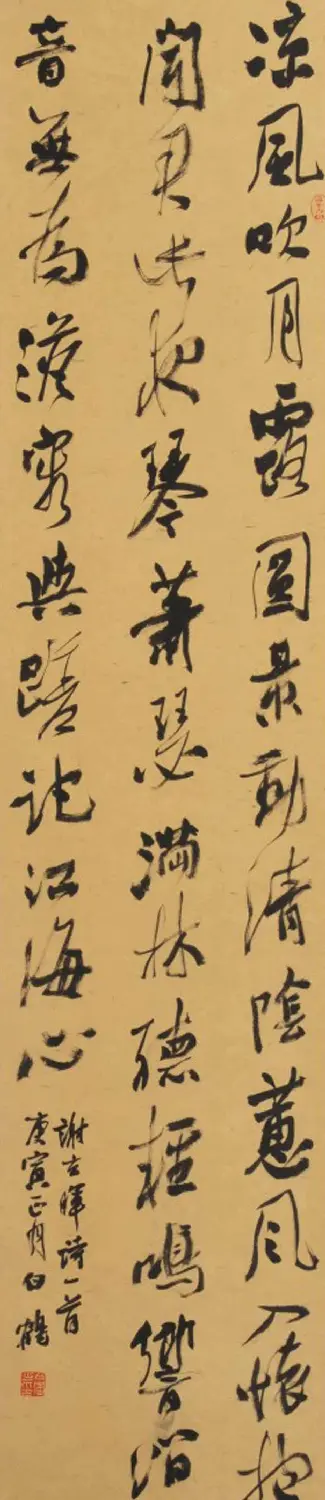 凉風吹月露圓景動清陰蕙風入懷抱
聞君此夜琴蕭瑟滿林聽輕鳴響澗
音無為澹容與蹉跎江海心
謝玄暉詩一首
庚寅正月白鶴